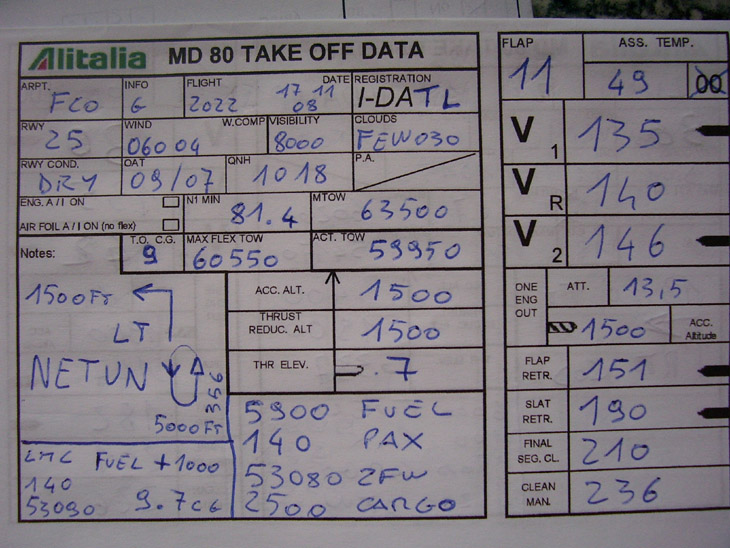 Alitalia MD 80 TAKE OFF DATA
ARPT. FCO INFO G FLIGHT 2022 DATE 17 11 08 REGISTRATION I-DATL
RWY 25 WIND 060 04 W.COMP VISIBILITY 8000 CLOUDS FEW030
RWY COND. DRY OAT 09/07 QNH 1018 P.A.
ENG. A / I ON
AIR FOIL A / I ON (no flex)
N1 MIN 81.4 MTOW 63500
Notes: T.O. C.G. 9 MAX FLEX TOW 60550 ACT. TOW 59950
1500FT
LT
NETUN 356
5000FT
ACC. ALT. 1500
THRUST REDUC. ALT 1500
THR ELEV. .7
LMC FUEL +1000
140
53090 9.7CG
5900 FUEL
140 PAX
53080 ZFW
2500 CARGO
FLAP 11 ASS. TEMP. 49 00
V1 135
VR 140
V2 146
ONE ENG OUT ATT. 13,5
1500 ACC. Altitude
FLAP RETR. 151
SLAT RETR. 190
FINAL SEG. CL. 210
CLEAN MAN. 236